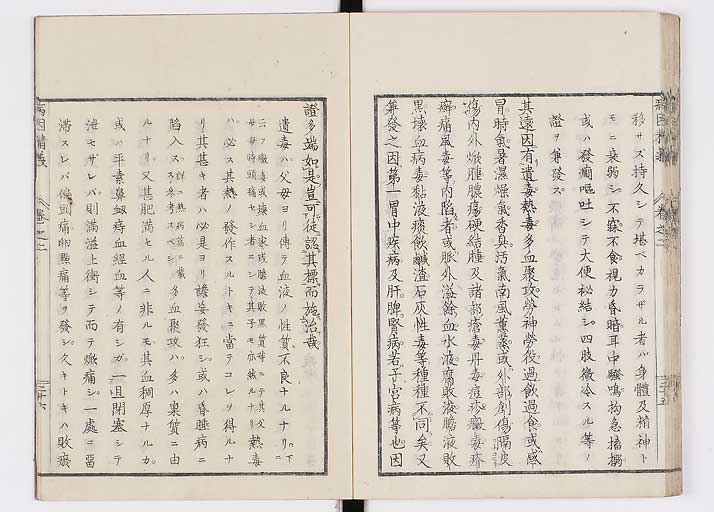 移サズ持久シテ堪ベカラザル者ハ身體及精神ト
モニ衰弱シ不寐不食視力昏暗耳中騒鳴拘急搐搦
或ハ發癇嘔吐シテ大便秘結シ四肢微冷スル等ノ
證ヲ兼發ス
其遠因有遺毒熱毒多血聚攻勞神勞役過飲過食或感
冒時氣暑濕燥氣香臭汚氣南風薫蒸或外部創傷膈皮
傷内外焮腫膿瘍硬結腫及諸部瘡毒丹毒痘疹黴毒疥
癬痛風毒等内陷者或脈外溢餘血水液腐敗液膽液敗
黒壊血病毒黏液痰飲鹹渣石灰性毒等種種不同矣又
兼發之因第一胃中疾病及肝脾腎病若子宮病等也因
證多端如是豈可徒認其標而施治哉
遺毒ハ父母ヨリ傳テ血液ノ性質不良ナルナリ
ハ必ス其熱ノ發作スルトキニ當テコレヲ得ルナ
リ其甚キ者ハ必是ヨリ譫妄發狂シ或ハ昏睡病ニ
陷入ス 多血聚攻ハ多ハ稟質ニ由
ルナリ又甚肥満セル人ニ非ルモ其血稠厚ナルカ
或ハ平素鼻衂痔血經血等ノ有シガ一旦閉塞シテ
泄セザレバ則満溢上衝シテ而テ焮痛シ一處ニ畱
滞スレバ偏頭痛卵㸃痛等ヲ發シ久キトキハ敗瘀
病因精義
卷之二
二十五
二十六